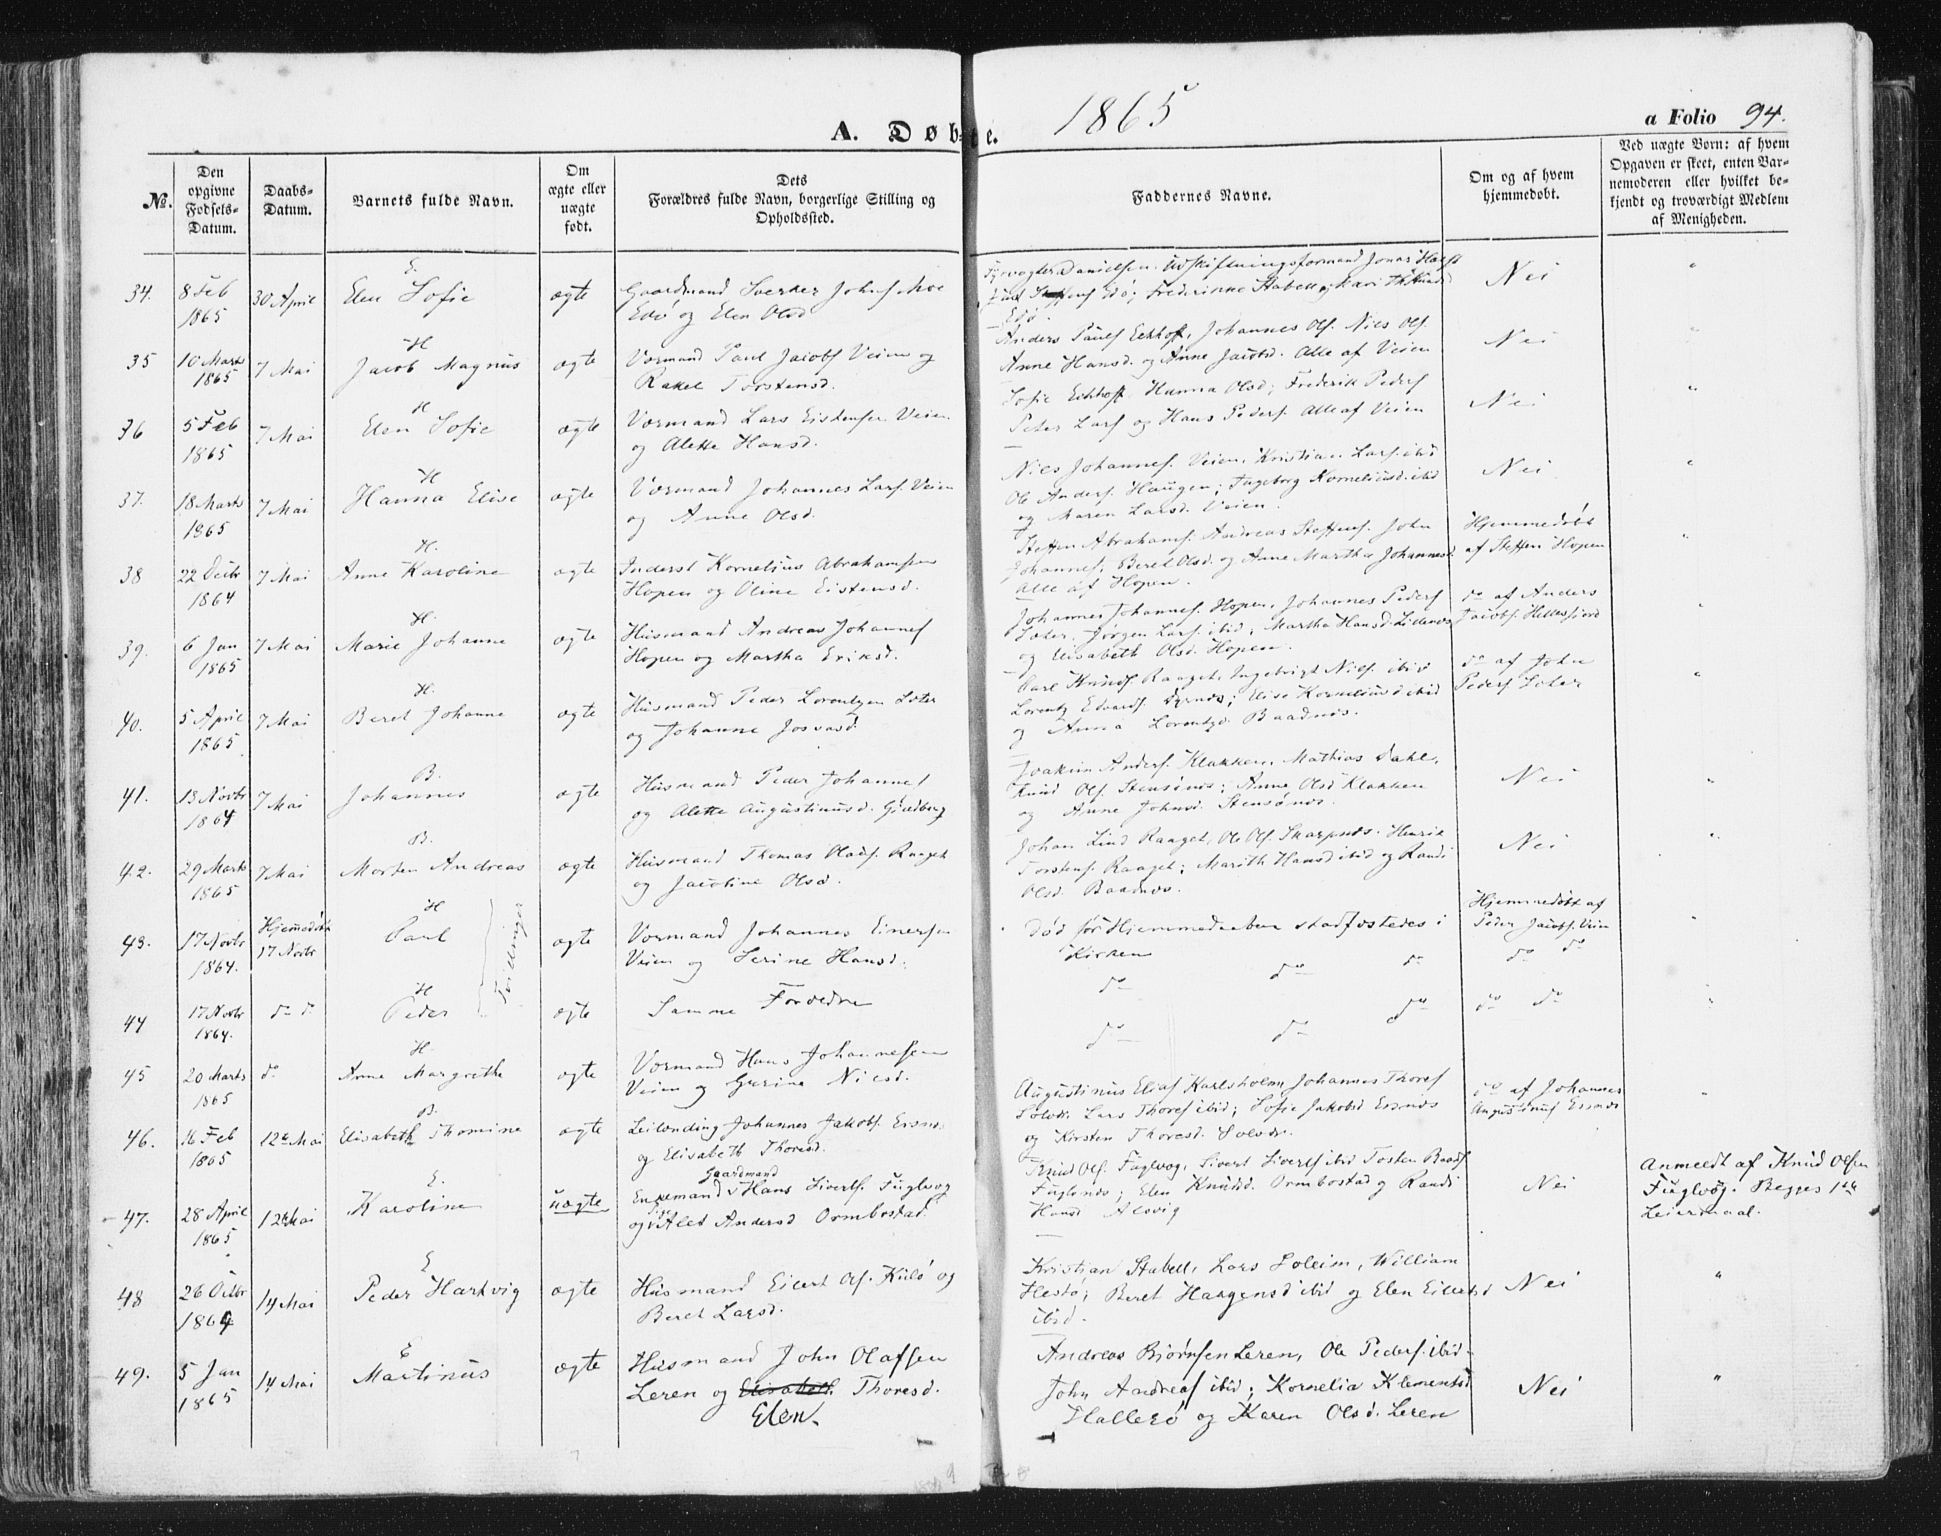 1865
A. Døbte.
a Folio 94.
No.
Den opgivne Fødsels-Datum.
Daabs-Datum.
Barnets fulde Navn.
Om ægte eller uægte født.
Dets Forældres fulde Navn, borgerlige Stilling og Opholdssted.
Faddernes Navne.
Om og af hvem hjemmedøbt.
Ved uægte Børn: af hvem Opgaven er skeet, enten Barnemoderen eller hvilket bekjendt og troværdigt Medlem af Menigheden.
34. 8 Feb 1865 30 April E. Elen Sofie ægte Gaardmand Sverker Johns Moe
Edø og Elen Olsd
Fyrvogter Danielsen. Udskiftningsformand Jonas
Edø; Frederikke Stabell og Kari Edø.
Nei "
35 10 Marts 1865 7 Mai H Jacob Magnus ægte Vormand Paul Jacobs Veien og
Rakel Torstensd.
Anders Pauls Eckhoff, Johannes Ols. Nils Ols.
Anne Hansd. og Anne Jacobsd. Alle af Veien
Nei "
36 5 Feb 1865 7 Mai H Elen Sofie ægte Vormand Lars Eistensen Veien
og Alette Hansd.
Sofie Eckhoff Hanna Olsd; Frederik Peders
Peter Lars og Hans Peders. Alle af Veien
Nei "
37. 18 Marts 1865 7 Mai H Hanna Elise ægte Vormand Johannes Lars. Veien
og Anne Olsd.
Niels Johannes. Veien, Kristian Lars. ibid
Ole Anders. Haugen; Ingeborg Korneliusd. ibid
og Maren Larsd. Veien.
Nei "
38 22 Octbr 1864 7 Mai H. Anne Karoline ægte Inderst Kornelius Abrahamsen
Hopen og Oline Eistensd.
Steffen Abrahams. Andreas Steffens. John
Johannes, Beret Olsd. og Anne Martha Johannesd.
Alle af Hopen.
Hjemmedøbt
af Steffen Hopen
"
39. 6 Jan 1865 7 Mai H. Marie Johanne ægte Husmand Andreas Johannes
Hopen og Martha Eriksd.
Johannes Johannes. Hopen, Johannes Peders
Sæter, Jørgen Lars. ibid; Martha Hansd.
og Elisabeth Olsd. Hopen.
do af Anders
Jacobs. Hellesfjord
"
40. 5 April 1865 7 Mai H. Beret Johanne ægte Husmand Peder Lorentzen Sæter
og Johanne Josvasd.
Carl Knuds Raaget, Ingebrigt Niels. ibid
Lorentz Edvards. Dyrnes; Elise Korneliusd ibid
og Anna Lorentzd. Baadnes.
do af John
Peders. Sæter
"
41. 13 Novbr 1864 7 Mai B. Johannes ægte Husmand Peder Johannes
og Alette Augustinusd. Gjedberg
Joakim Anders. Klakken, Mathias Dahl,
Knud Ols. Stensønes; Anne Olsd Klakken
og Anne Johnsd. Stensønes.
Nei "
42. 29 Marts 1865 7 Mai B. Morten Andreas ægte Husmand Thomas Olaus. Raaget
og Jacoline Olsd.
Johan Lind Raaget, Ole Ols. Skarpnes. Henrik
Torstens. Raaget; Marith Hansd ibid og Randi
Olsd. Baadnes.
Nei "
43. 17 Novbr 1864. Hjemmedøbt 17 Novbr H Paul Tvillinger ægte Vormand Johannes Einersen
Veien og Serine Hansd.
Død før Hjemmedaaben stadfæstedes i
Kirken
Hjemmedøbt af
Peder Jacobs. Veien
"
44 17 Novbr 1864. do do H Peder ægte Samme Forældre
do do do do do
45 20 Marts 1865 do H. Anne Margrethe ægte Vormand Hans Johannesen
Veien og Gurine Nielsd.
do do do do do
46. 16 Feb 1865 12te Mai B. Elisabeth Thomine ægte Leilænding Johannes Jakobs. Ersnes
og Elisabeth Thoresd.
Augustinus Elias Karlsholm, Johannes Thores
Solvdr. Lars Thores ibid; Sofie Jakobsd Ersnes
og Kirsten Thoresd. Solvdr.
do af Johannes
Augustinus Ersnes
"
47. 28 April 1865 12te Mai E. Karoline uægte Gaardmand
Enkemand Hans Siverts. Fuglvog
og Pige Alet Andersd Ormbostad.
Knud Ols. Fuglvog, Sivert Siverts ibid Tosten
Fuglsnes; Elen Knudsd. Ormbostad og Randi
Hansd Alsvig
Nei
Anmeldt af Knud Olsen
Fuglvog. Begges 1ste
Leiermaal.
48 26 Octbr 1864 14 Mai E Peder Hartvig ægte Husmand Eilert Ols. Kulø og
Beret Larsd.
Kristian Stabell, Lars Soleim, William
Hestø; Beret Haagensd ibid og Elen Eilertsd
ibid.
Nei "
49. 5 Jan 1865 14 Mai E Martinus ægte Husmand John Olafsen
Leren og Elisabeth Thoresd.
Elen.
Andreas Bjørnsen Leren, Ole Peders. ibid.
John Andreas ibid; Kornelia Klementsd
Hallerø og Karen Olsd. Leren
Nei "